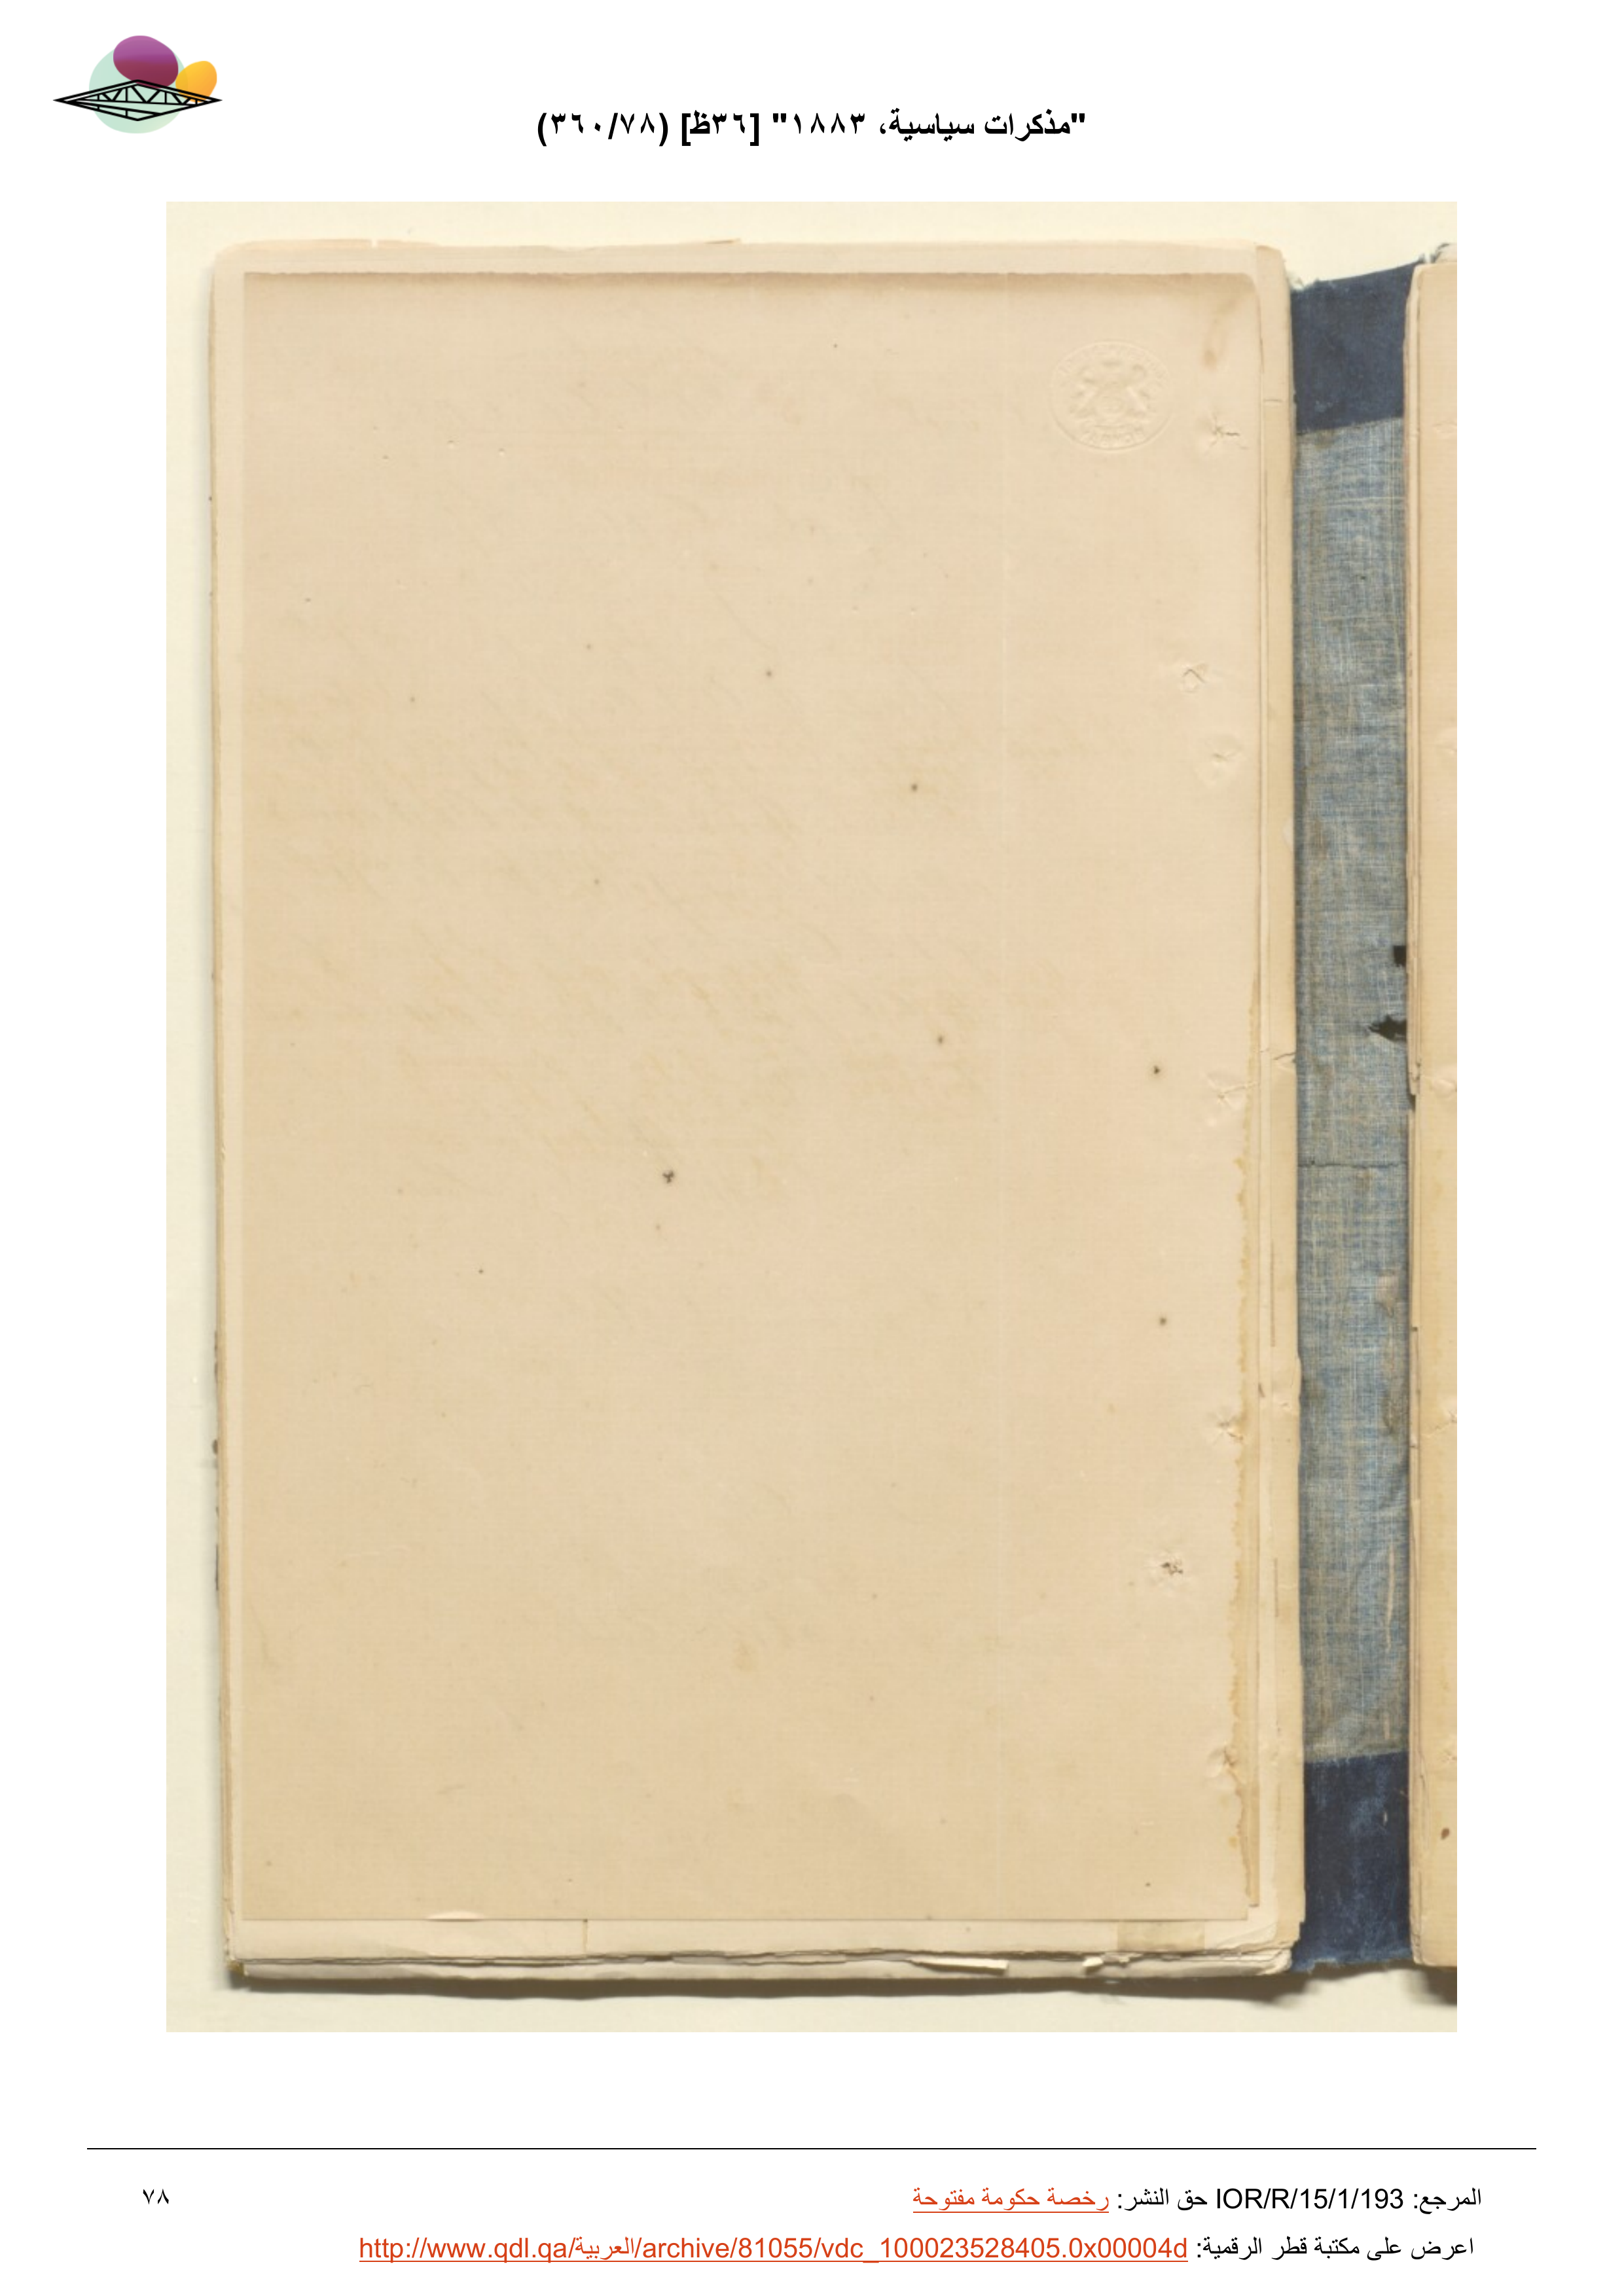 "مذكرات سياسية، ١٨٨٣" [٣٦ظ] (٣٦٠/٧٨)
المرجع: IOR/R/15/1/193 حق النشر: رخصة حكومة مفتوحة
٧٨
اعرض على مكتبة قطر الرقمية: http://www.qdl.qa/العربية/archive/81055/vdc_100023528405.0x00004d